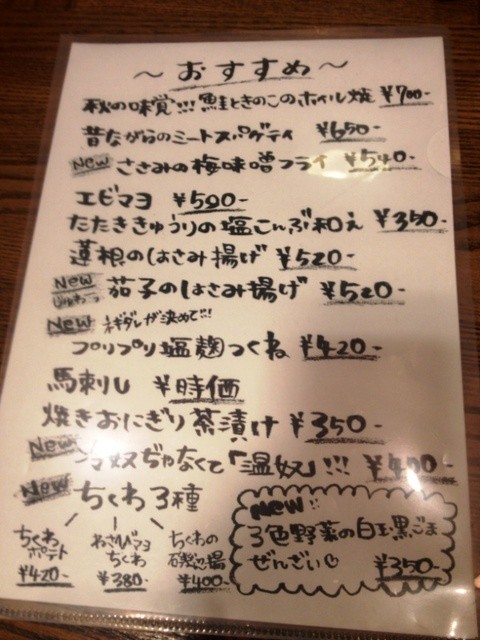 ～おすすめ～
秋の味覚!!! 鮭ときのこのホイル焼 ¥700-
昔ながらのミートスパゲティ ¥650-
New ささみの梅味噌フライ ¥540-
エビマヨ ¥590-
たたききゅうりの塩こんぶ和え ¥350-
蓮根のはさみ揚げ ¥520-
New 茄子のはさみ揚げ ¥520-
New ネギダレが決めて!!!
プリプリ塩麹つくね ¥420-
馬刺し ¥時価
焼きおにぎり茶漬け ¥350-
New 冷奴ぢゃなくて「温奴」!!! ¥400-
New ちくわ3種
ちくわポテト ¥420-
わさびマヨちくわ ¥380-
ちくわの磯辺揚 ¥400-
New!!
3色野菜の白玉黒ごま
ぜんざい ¥350-